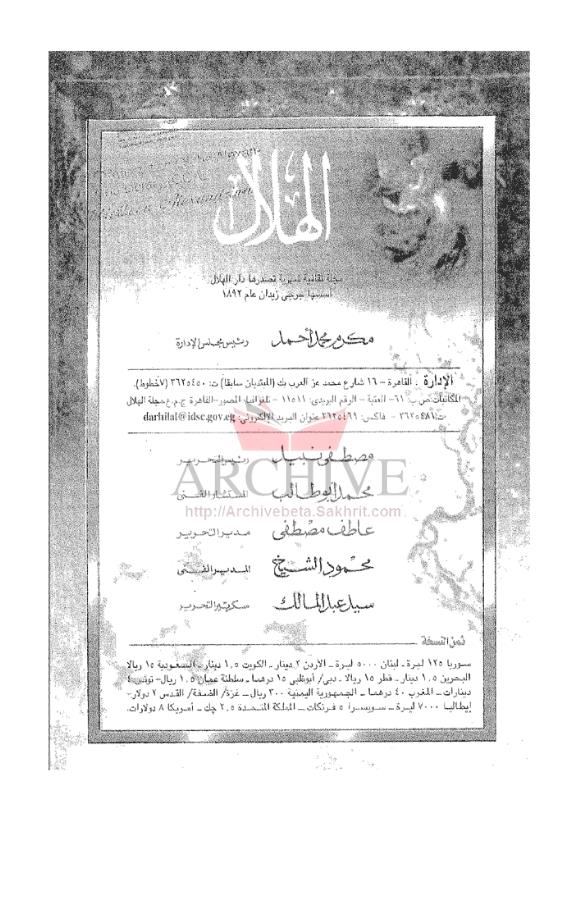 الهلال
مجلة ثقافية شهرية تصدرها دار الهلال
أسسها جرجى زيدان عام ١٨٩٢
مكرم محمد أحمد رئيس مجلس الإدارة
الإدارة . القاهرة - ١٦ شارع محمد عز العرب بك (المبتديان سابقا) ت: ٣٦٢٥٤٥٠ (٧خطوط).
المكاتبات ص.ب: ٦١- العتبة - الرقم البريدى: ١١٥١١ - تلغرافيا: المصور-القاهرة ج.م.ع-مجلة الهلال
ت: ٣٦٢٥٤٨١ - فاكس: ٣٦٢٥٤٦٩ عنوان البريد الالكترونى: darhilal@idsc.gov.eg
مصطفى نبيل رئيس التحرير
ARCHIVE
محمد أبو طالب المستشار الفنى
http://Archivebeta.Sakhrit.com
عاطف مصطفى مدير التحرير
محمود الشيخ المدير الفنى
سيد عبد المالك سكرتير التحرير
ثمن النسخة
سوريا ١٢٥ ليرة ـ لبنان ٥٠٠٠ ليرة ـ الأردن ٢ دينار ـ الكويت ١.٥ دينار ـ السعودية ١٥ ريالا
البحرين ١.٥ دينار ـ قطر ١٥ ريالا ـ دبى/ أبوظبى ١٥ درهما ـ سلطنة عمان ١.٥ ريال- تونس ٤
دينارات ـ المغرب ٤٠ درهما ـ الجمهورية اليمنية ٣٠٠ ريال ـ غزة/ الضفة/ القدس ٢ دولار-
إيطاليا ٧٠٠٠ ليرة ـ سويسرا ٥ فرنكات ـ المملكة المتحدة ٢.٥ جك ـ أمريكا ٨ دولارات.